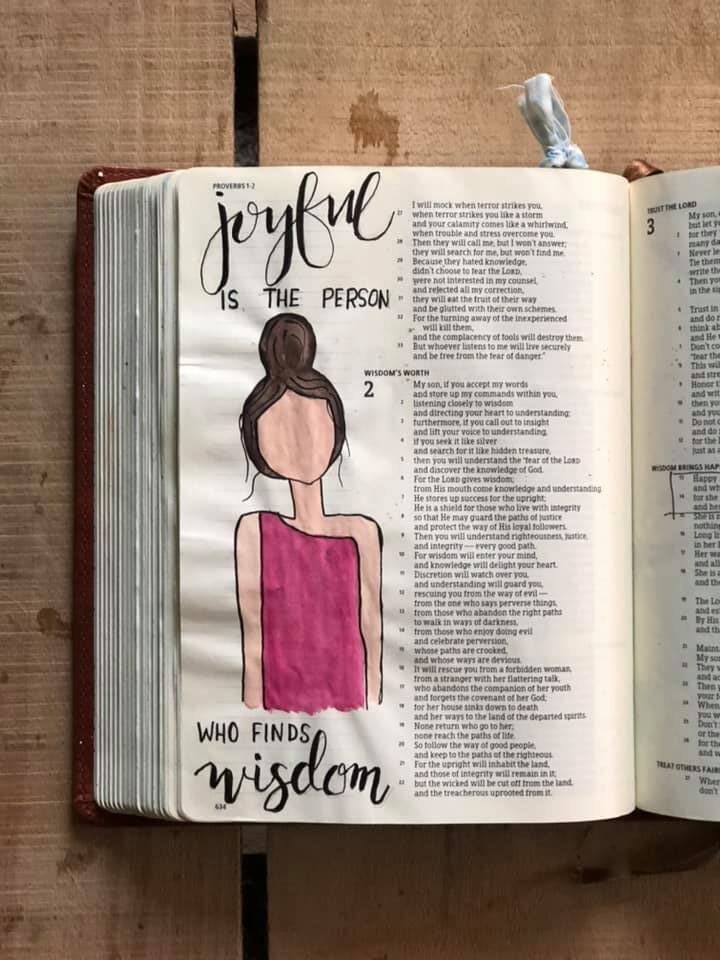 PROVERBS 1-2
joyful
IS THE PERSON
WHO FINDS
wisdom
634
I will mock when terror strikes you,
27 when terror strikes you like a storm
and your calamity comes like a whirlwind,
when trouble and stress overcome you.
28 Then they will call me, but I won't answer;
they will search for me, but won't find me.
29 Because they hated knowledge,
didn't choose to fear the LORD,
30 were not interested in my counsel,
and rejected all my correction,
31 they will eat the fruit of their way
and be glutted with their own schemes.
32 For the turning away of the inexperienced
will kill them,
and the complacency of fools will destroy them.
33 But whoever listens to me will live securely
and be free from the fear of danger."
WISDOM'S WORTH
2 My son, if you accept my words
and store up my commands within you,
2 listening closely to wisdom
and directing your heart to understanding;
3 furthermore, if you call out to insight
and lift your voice to understanding,
4 if you seek it like silver
and search for it like hidden treasure,
5 then you will understand the fear of the LORD
and discover the knowledge of God.
6 For the LORD gives wisdom;
from His mouth come knowledge and understanding.
7 He stores up success for the upright;
He is a shield for those who live with integrity
8 so that He may guard the paths of justice
and protect the way of His loyal followers.
9 Then you will understand righteousness, justice,
and integrity — every good path.
10 For wisdom will enter your mind,
and knowledge will delight your heart.
11 Discretion will watch over you,
and understanding will guard you,
12 rescuing you from the way of evil —
from the one who says perverse things,
13 from those who abandon the right paths
to walk in ways of darkness,
14 from those who enjoy doing evil
and celebrate perversion,
15 whose paths are crooked,
and whose ways are devious.
16 It will rescue you from a forbidden woman,
from a stranger with her flattering talk,
17 who abandons the companion of her youth
and forgets the covenant of her God;
18 for her house sinks down to death
and her ways to the land of the departed spirits.
19 None return who go to her;
none reach the paths of life.
20 So follow the way of good people,
and keep to the paths of the righteous.
21 For the upright will inhabit the land,
and those of integrity will remain in it;
22 but the wicked will be cut off from the land,
and the treacherous uprooted from it.
TRUST THE LORD
3 My son,
but let
2 for they
many da
3 Never le
Tie them
write th
4 Then yo
in the si
5 Trust in
and do n
6 think ab
and He
7 Don't co
fear the
8 This wil
and stre
9 Honor
and wit
10 then yo
and yo
11 Do not
and do
12 for the
just as
WISDOM BRINGS HAP
13 Happy
and wh
14 for she
and he
15 She is
nothin
16 Long li
in her
17 Her wa
and all
18 She is
and th
19 The Lo
and es
20 By His
and th
21 Maint
My so
22 They
and ad
23 Then
your f
24 When
you w
25 Don't
or the
26 for the
and w
TREAT OTHERS FAIR
27 When
don't